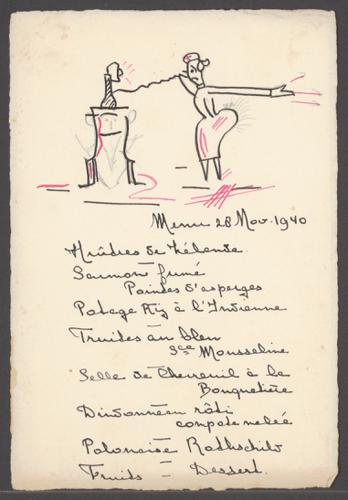 Menu 28 Nov. 1940
Huîtres de Zélande
Saumon fumé
Pointes d'asperges
Potage Riz à l'Indienne
Truites au bleu
Sce Mousseline
Selle de Chevreuil à la
Bouquetière
Dindonneau rôti
compote melée
Polonaise Rothschild
Fruits = Dessert.